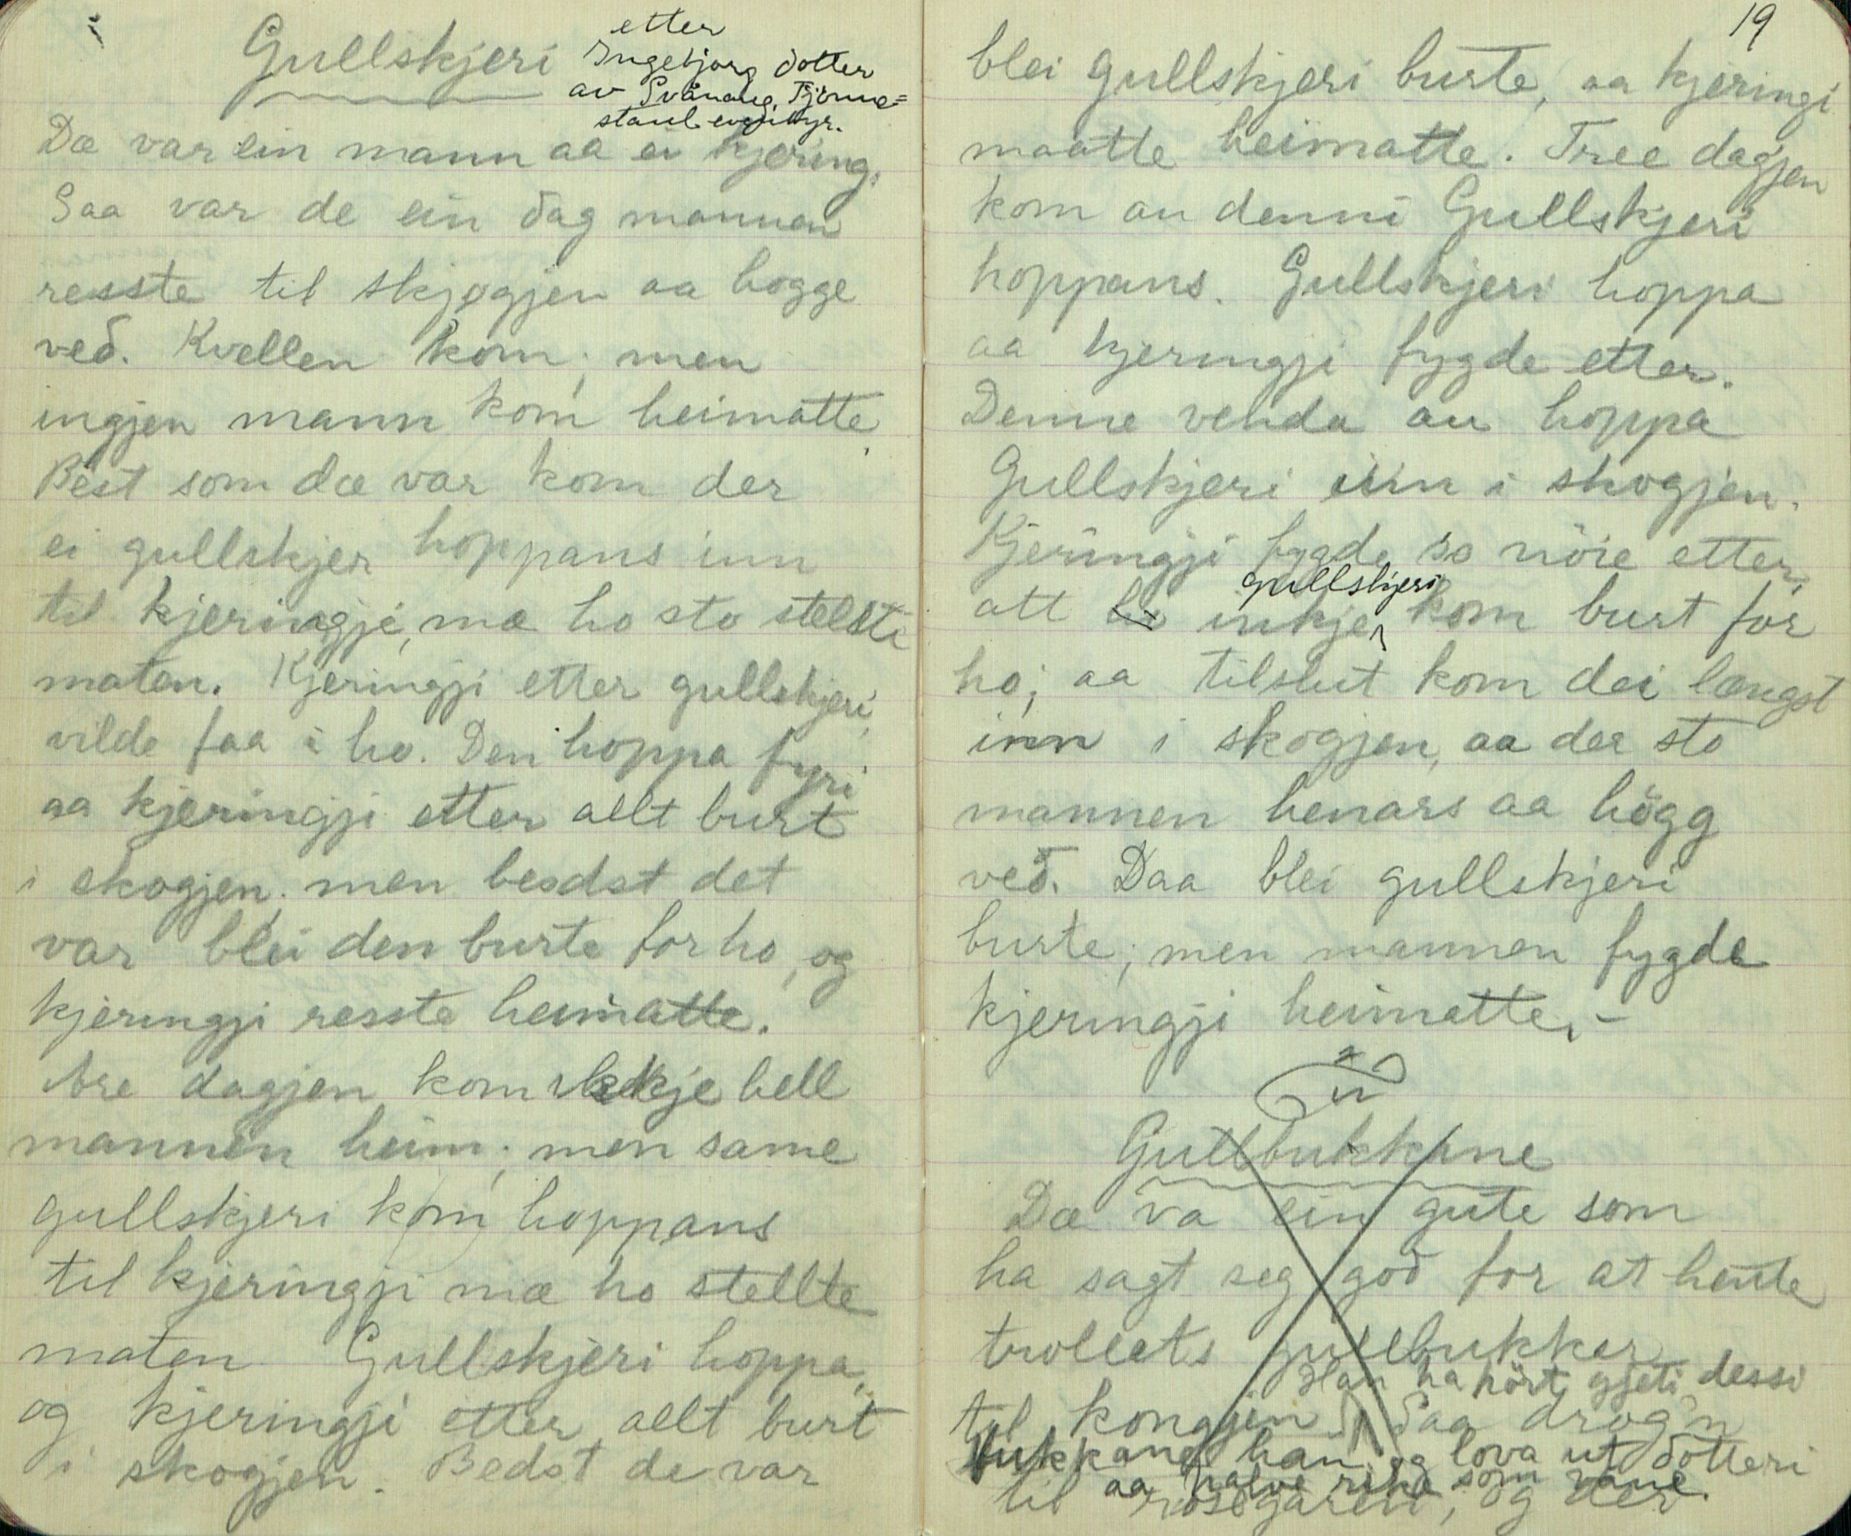 Gullskjeri
etter
Ingebjorg dotter
av Svånaug, Tjönne=
staul eventyr.
Dæ var ein mann aa ei kjering.
Saa var de ein dag mannen
resste til skjogjen aa hogge
ved. Kvellen kom; men
ingjen mann kom heimatte,
Best som dæ var kom der
ei gullskjer hoppans inn
til kjeringji, mæ ho sto stellte
maten. Kjeringji etter gullskjeri,
vilde faa i ho. Den hoppa fyri
aa kjeringji etter allt burt
i skogjen. men besdst det
var blei den burte for ho, og
kjeringji resste heimatte.
Are dagjen kom ikkje hell
mannen heim; men same
gullskjeri kom hoppans
til kjeringji mæ ho stellte
maten Gullskjeri hoppa,
og kjeringji etter allt burt
i skogjen. Bedst de var
19
blei gullskjeri burte, aa kjeringi
maatte heimatte. Tree dagjen
kom au denni Gullskjeri
hoppans. Gullskjeri hoppa
aa kjeringji fygde etter.
Denne venda au hoppa
Gullskjeri inn i skogjen.
Kjeringji fygde so nöie etter,
att inkje gullskjeri kom burt for
ho; aa tilslut kom dei længst
inn i skogjen, aa der sto
mannen henars aa högg
ved. Daa blei gullskjeri
burte; men mannen fygde
kjeringji heimatte. –
Gullbukkane
Dæ va ein gute som
ha sagt seg god for at hente
trollets gullbukkar
Han ha hört gjeti dessi
til kongjen Saa drog'n
bukkane han og lova ut dotteri
aa halve rike som vane.
til rosegaren, og der